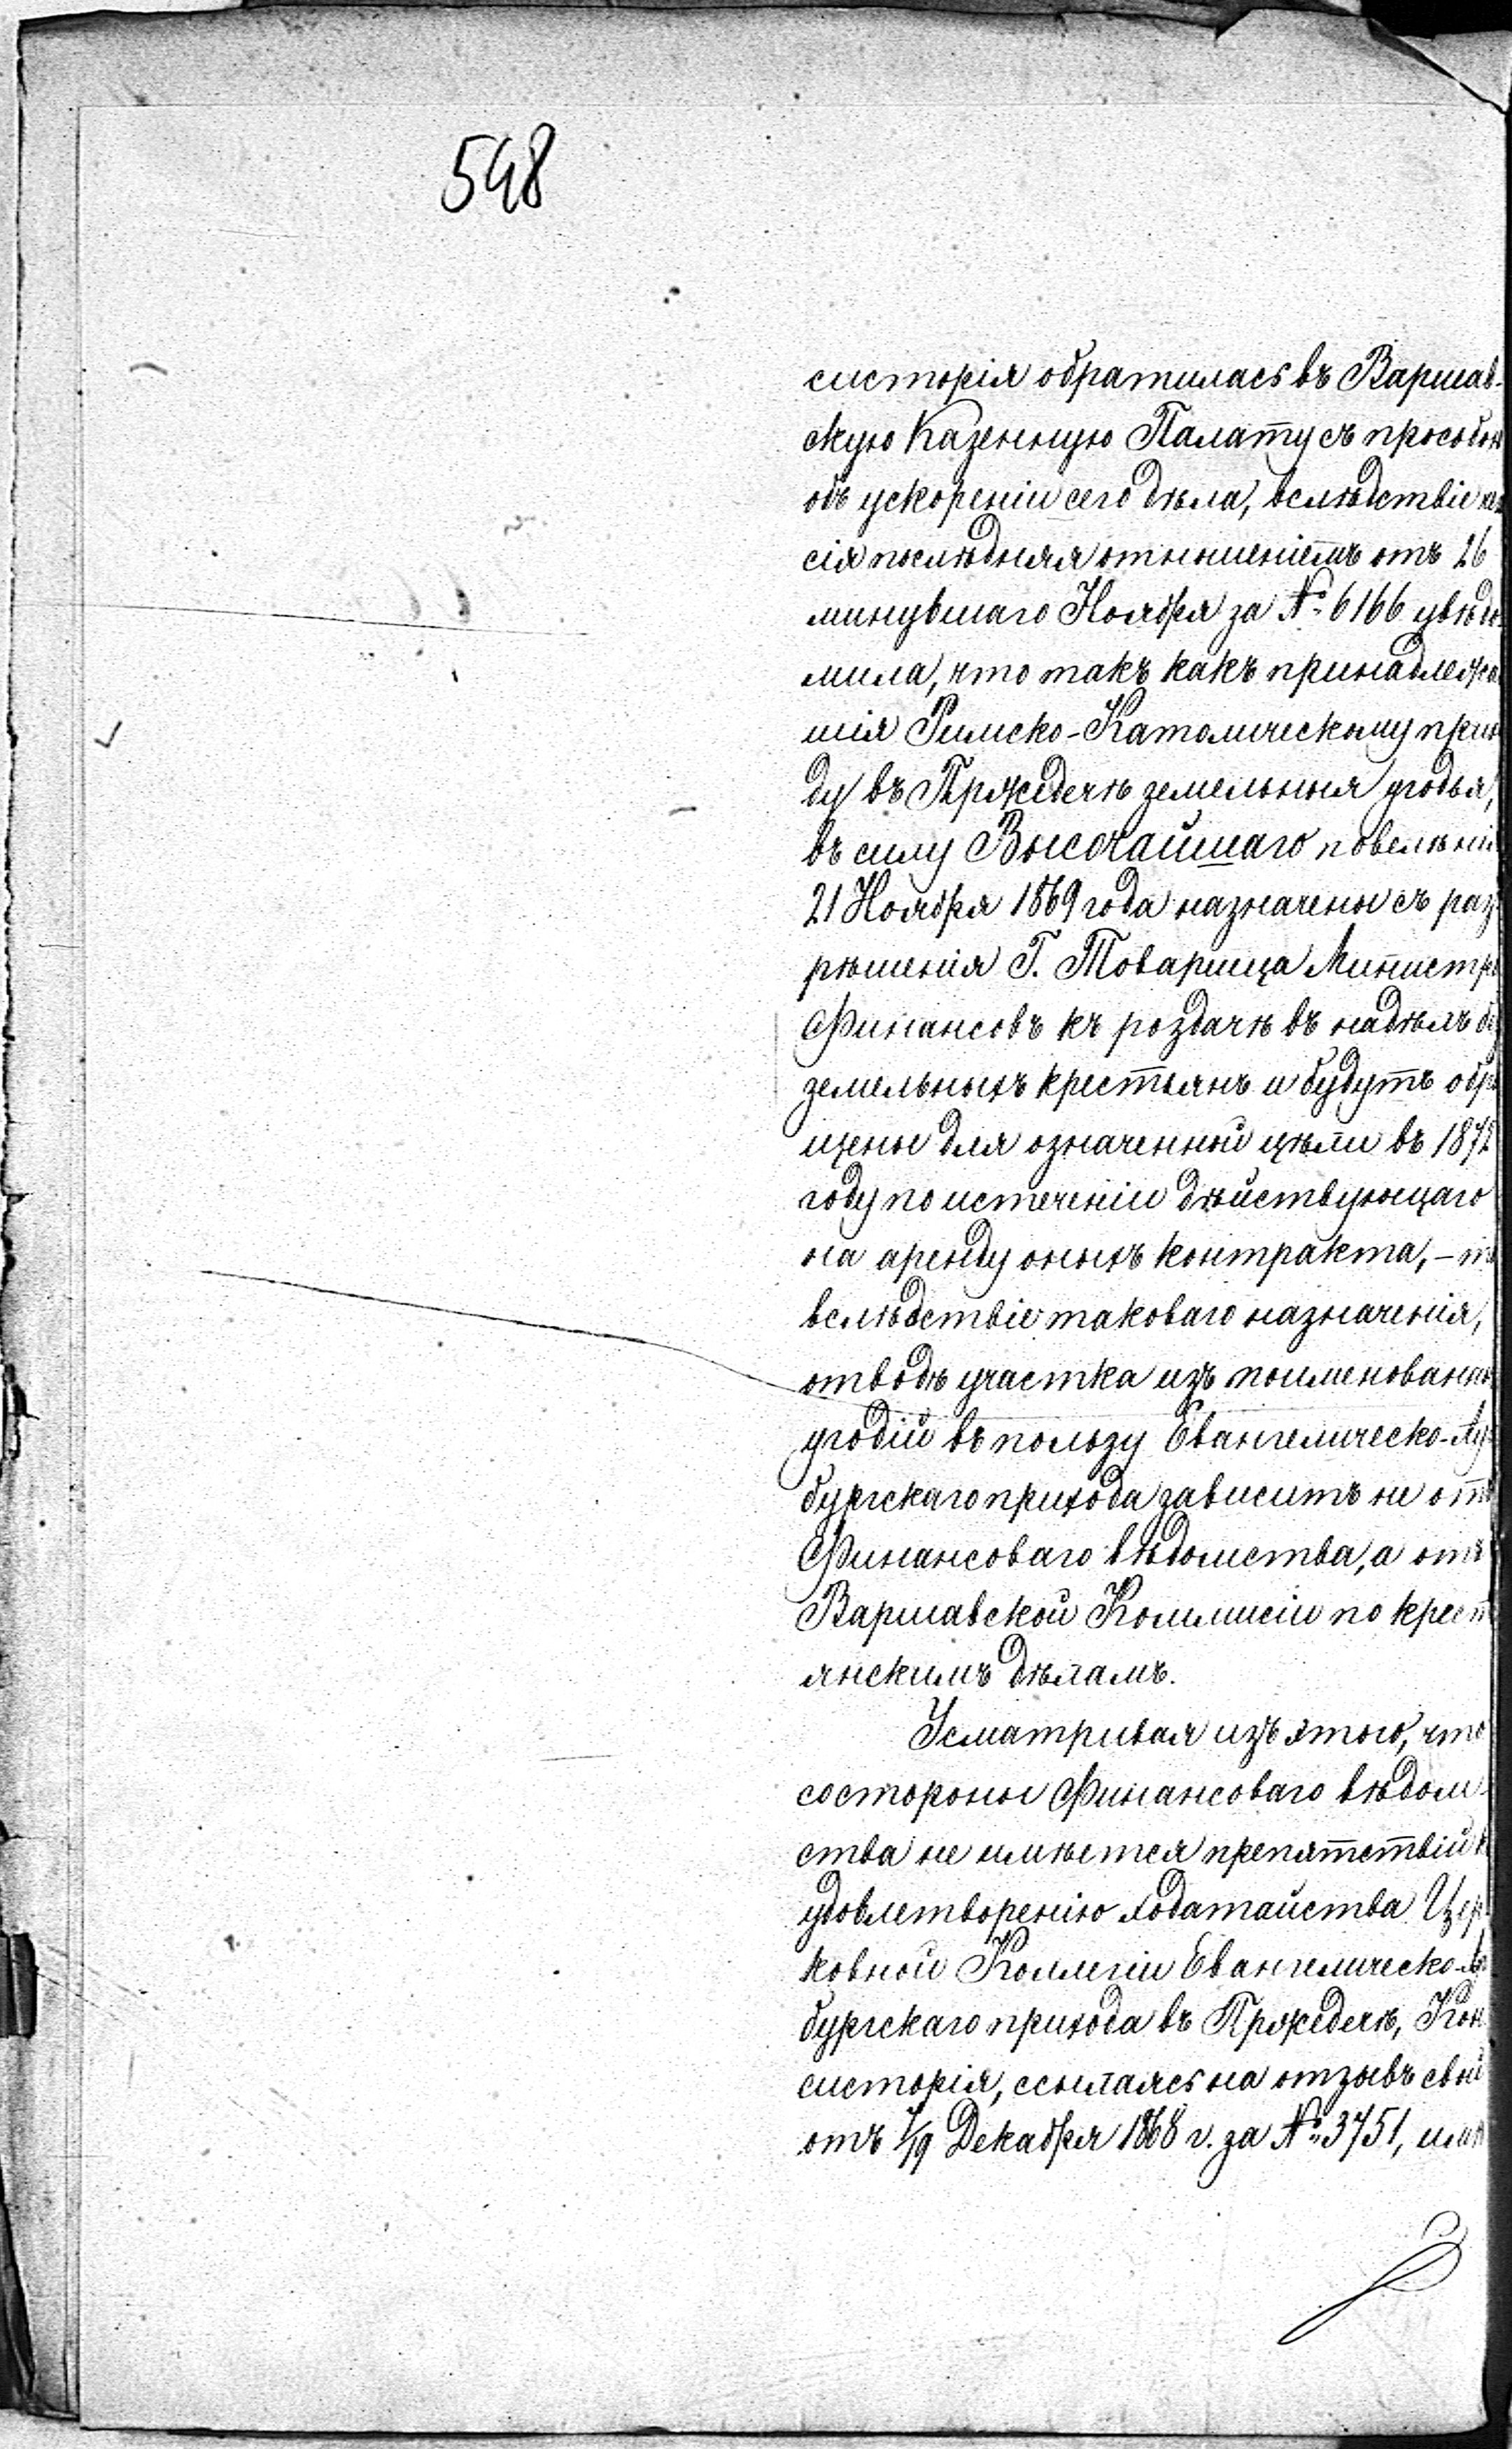 548
систорія обратилась въ Варшав-
скую Казенную Палату съ прособою
объ ускореніи сего дѣла, вслѣдствіе че
сія послѣдняя отношеніемъ отъ 26
минувшаго Ноября за № 6166 увѣдо-
мила, что такъ какъ принадлежа
шія Римско-Католическому прихо
ду въ Пржедечѣ земельныя угодья,
въ силу Высочайшаго повелѣнія
21 Ноября 1869 года назначены съ раз-
рѣшенія Г. Товарища Министра
Финансовъ къ роздачѣ въ надѣлъ без
земельныхъ крестьянъ и будутъ обра
щены для означенной цѣли въ 1872
году по истеченіи дѣйствующаго
на аренду оныхъ контракта, – то
вслѣдствіе таковаго назначенія,
отводъ участка изъ поименованны
угодій въ пользу Евангелическо-Ау
бургскаго прихода зависитъ не отъ
Финансоваго вѣдомства, а отъ
Варшавской Коммисіи по крест
янскимъ дѣламъ.
Усматривая изъ этого, что
со стороны Финансоваго вѣдом-
ства не имѣется препятствій к
удовлетворенію ходатайства Цер
ковной Коллегіи Евангелическо-Ау
бургскаго прихода въ Пржедечѣ, Кон
систорія, ссылаясь на отзывъ свой
отъ 7/19 Декабря 1868 г. за № 3751, имѣ